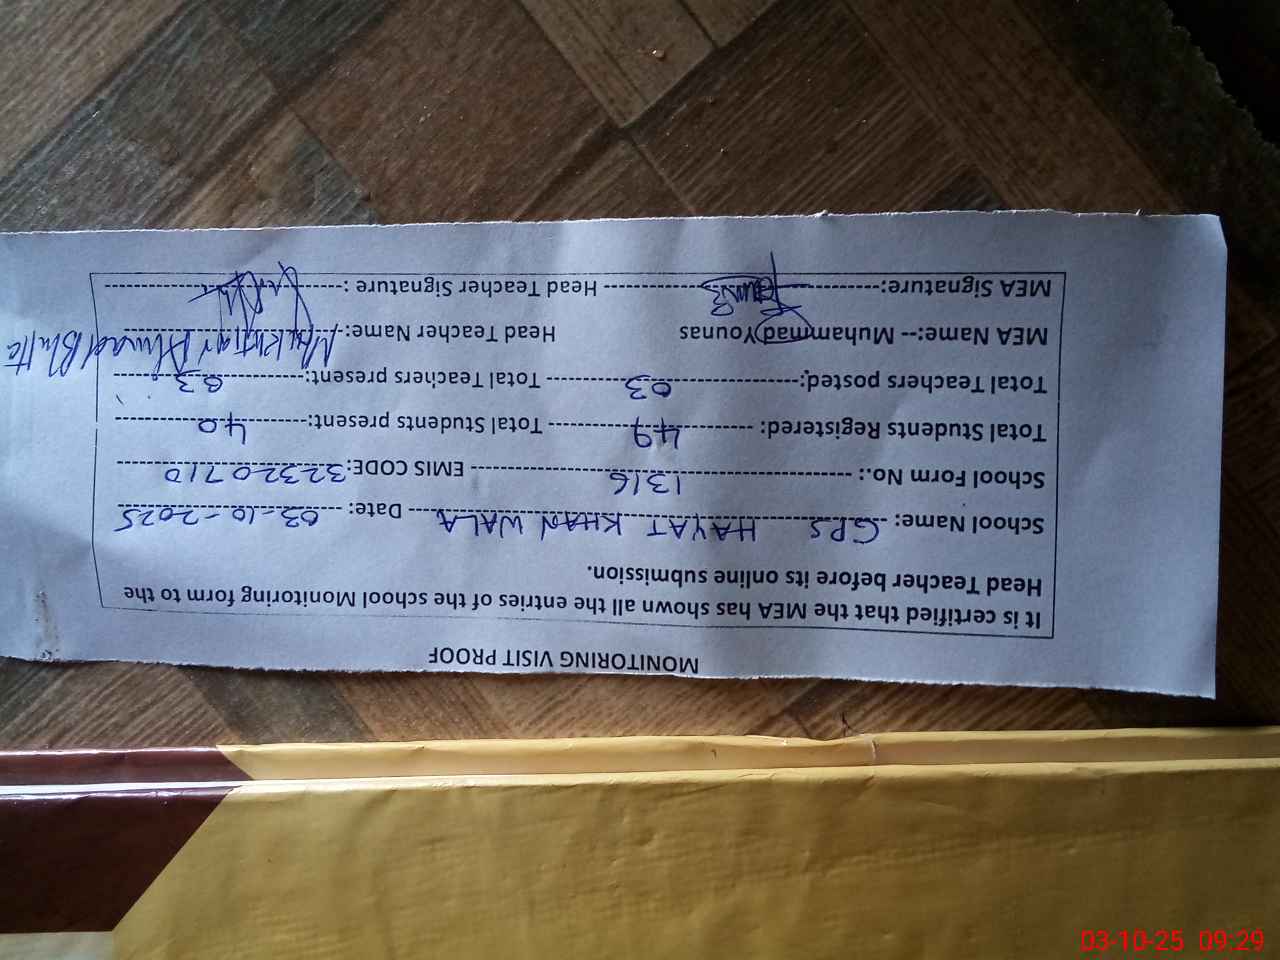 MONITORING VISIT PROOF
It is certified that the MEA has shown all the entries of the school Monitoring form to the
Head Teacher before its online submission.
School Name: GPS HAYAT KHAN WALA Date: 03-10-2025
School Form No.: 1316 EMIS CODE: 32320710
Total Students Registered: 49 Total Students present: 40
Total Teachers posted: 03 Total Teachers present: 03
MEA Name:-- Muhammad Younas Head Teacher Name: Mukhtiar Ahmad Bhutta
MEA Signature: Head Teacher Signature :
03-10-25 09:29